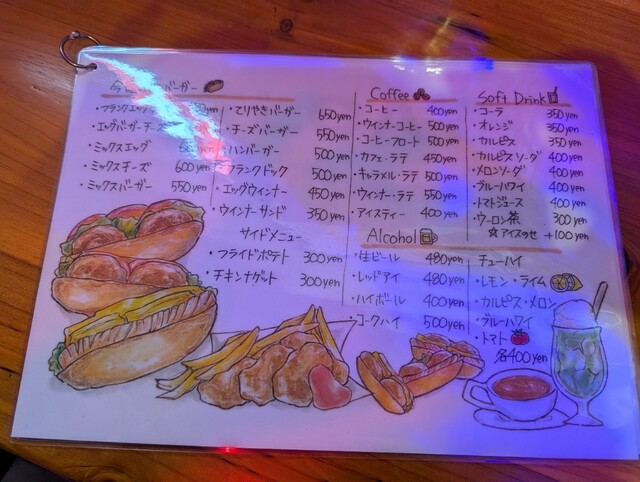 バーガー
・フランクエッグ
・エッグバーガーチーズ
・ミックスエッグ
・ミックスチーズ 600yen
・ミックスバーガー 550yen
・てりやきバーガー 650yen
・チーズバーガー 550yen
・ハンバーガー 500yen
・フランクドック 500yen
・エッグウィンナー 450yen
・ウインナーサンド 350yen
サイドメニュー
・フライドポテト 300yen
・チキンナゲット 300yen
Coffee
・コーヒー 400yen
・ウインナーコーヒー 500yen
・コーヒーフロート 500yen
・カフェ・ラテ 450yen
・キャラメル・ラテ 500yen
・ウィンナー・ラテ 550yen
・アイスティー 400yen
Soft Drink
・コーラ 350yen
・オレンジ 350yen
・カルピス 350yen
・カルピスソーダ 400yen
・メロンソーダ 400yen
・ブルーハワイ 400yen
・トマトジュース 400yen
・ウーロン茶 300yen
☆アイスのせ +100yen
Alcohol
・生ビール 480yen
・レッドアイ 480yen
・ハイボール 400yen
・コークハイ 500yen
チューハイ
・レモン・ライム
・カルピス・メロン
・ブルーハワイ
・トマト
各400yen